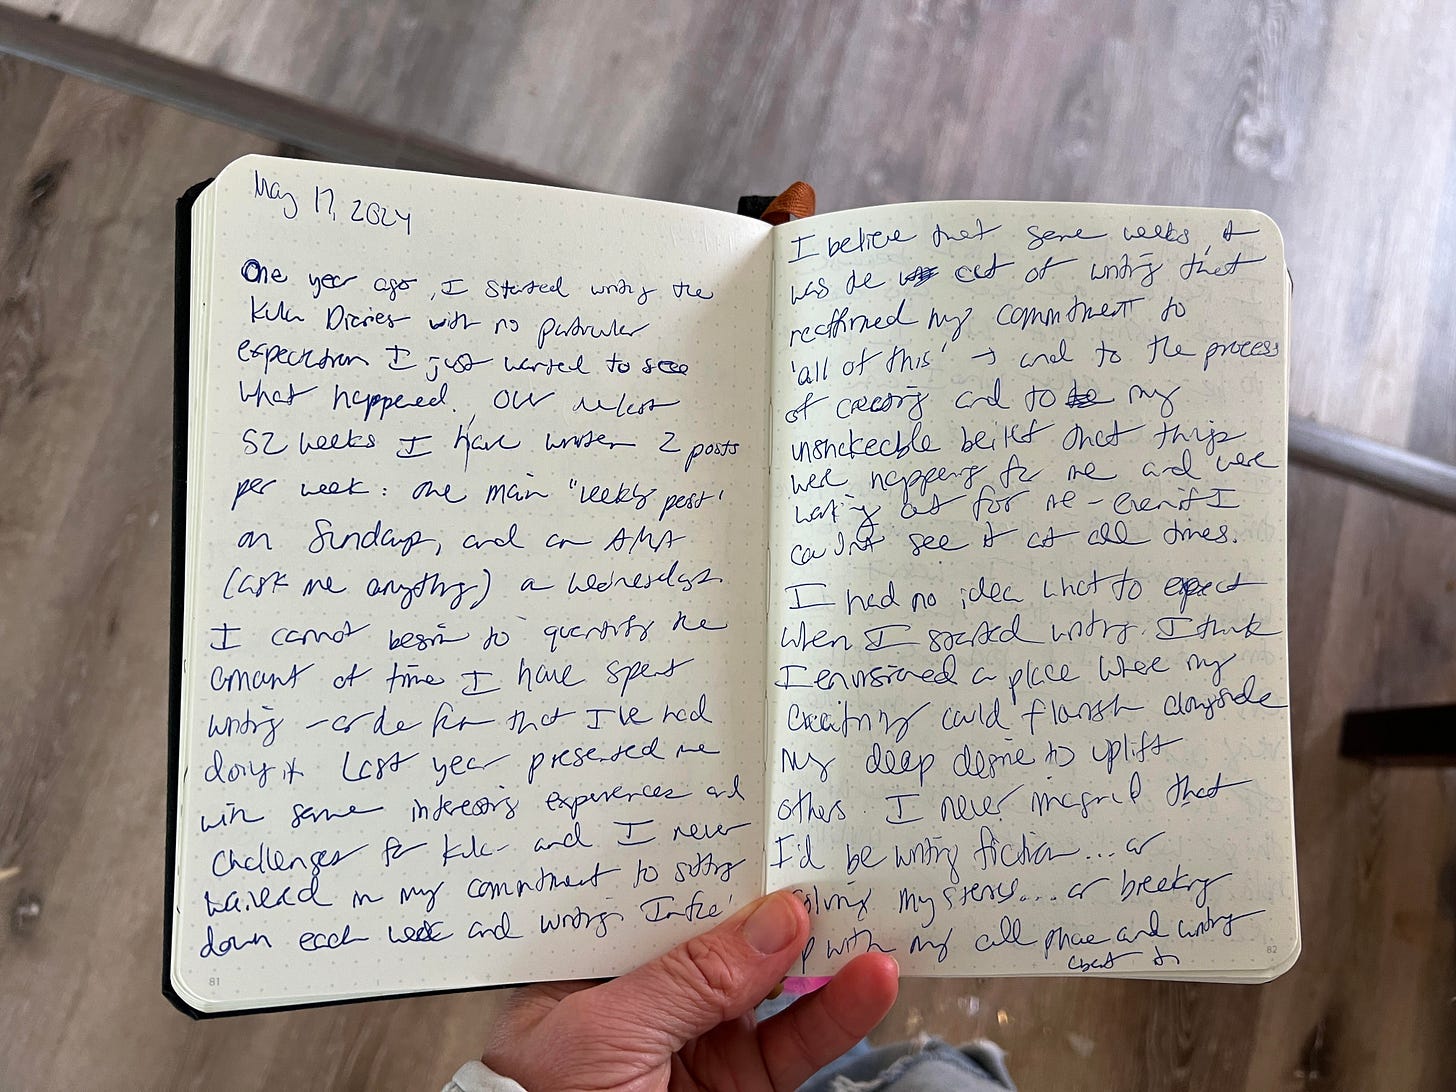 May 17, 2024
One year ago, I started writing the
Kula Diaries with no particular
expectation I just wanted to see
what happened. Over the last
52 weeks I have written 2 posts
per week: one main "weekly post"
on Sundays, and an AMA
(ask me anything) on Wednesdays.
I cannot begin to quantify the
amount of time I have spent
writing - or the fun that I've had
doing it. Last year presented me
with some interesting experiences and
challenges for Kula - and I never
waivered in my commitment to sitting
down each week and writing. In fact
81
I believe that some weeks, it
was the act of writing that
reaffirmed my commitment to
'all of this' → and to the process
of creating and to my
unshakeable belief that things
were happening for me and were
working out for me - even if I
couldn't see it at all times.
I had no idea what to expect
when I started writing. I think
I envisioned a place where my
creativity could flourish alongside
my deep desire to uplift
others. I never imagined that
I'd be writing fiction... or
solving mysteries... or breaking
up with my cell phone and writing
about it
82